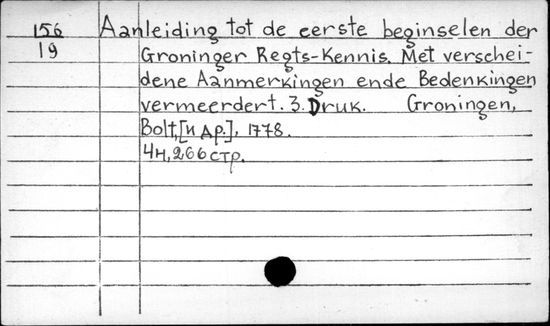 156 Aanleiding tot de eerste beginselen der
19 Groninger Regts-Kennis. Met verschei-
dene Aanmerkingen ende Bedenkingen
vermeerdert. 3. Druk. Groningen,
Bolt,[и др.], 1778.
4н, 266 стр.